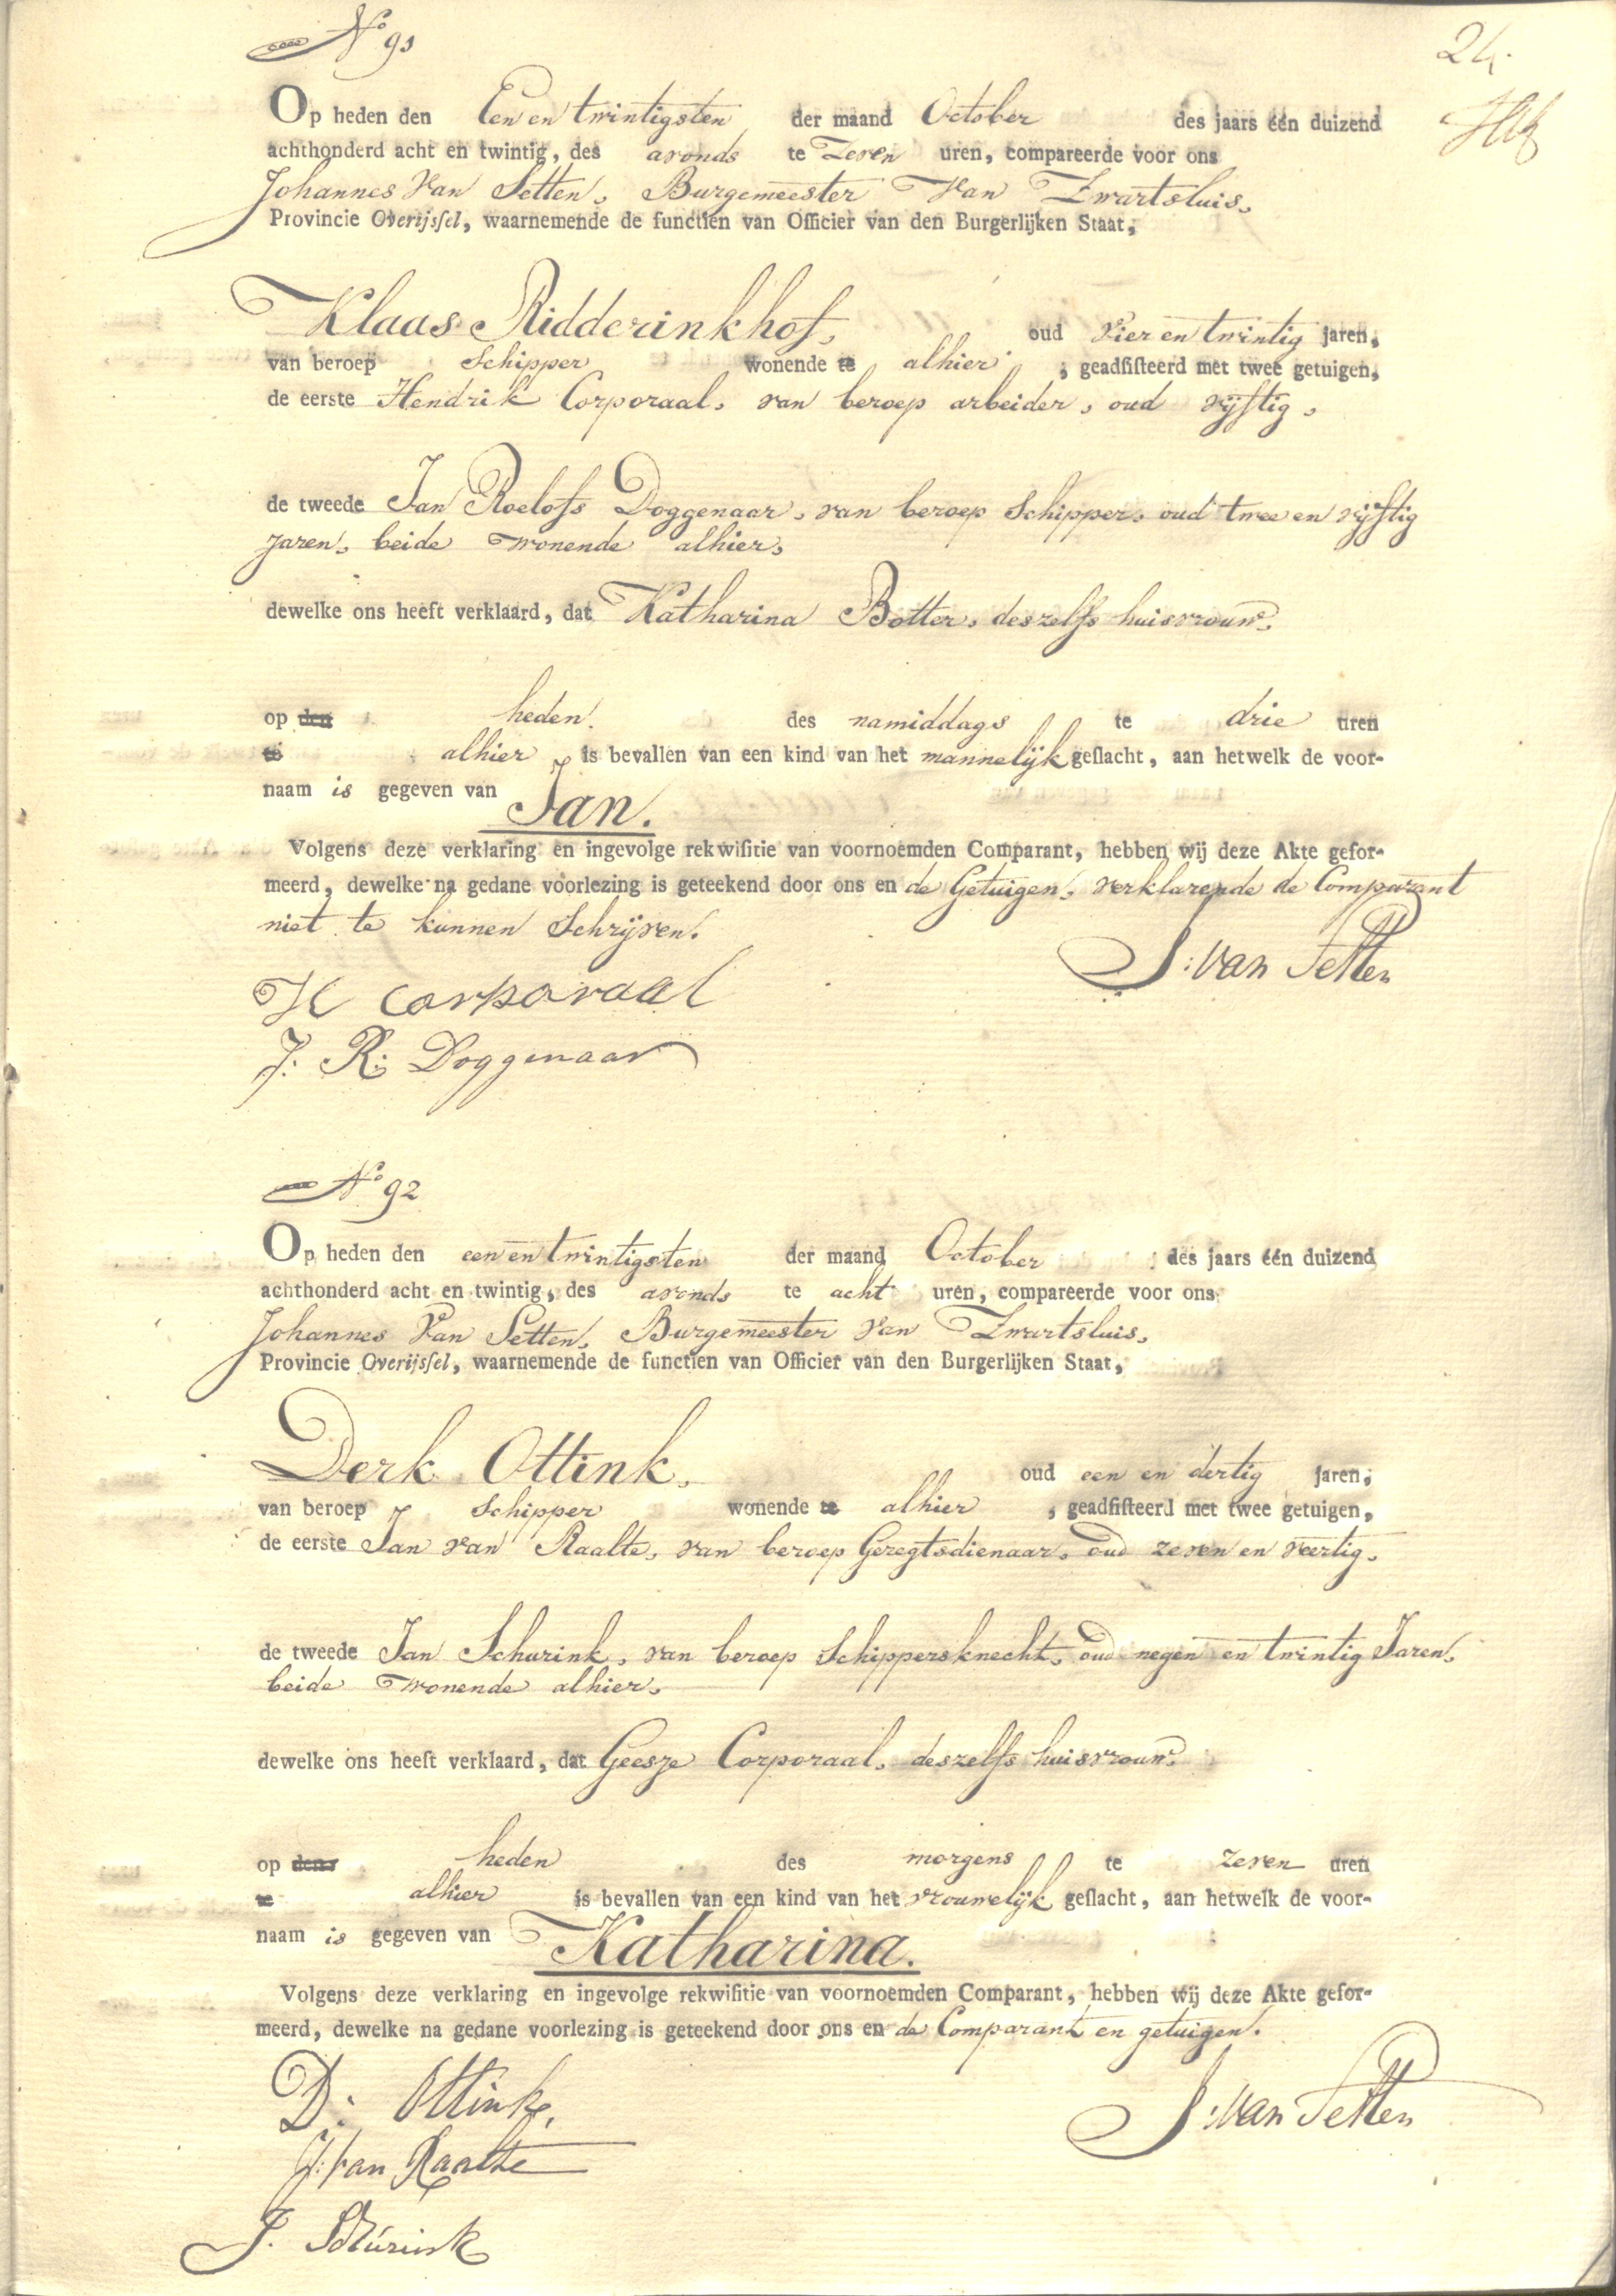 No 91
24.
Op heden den Een en twintigsten der maand October des jaars één duizend
achthonderd acht en twintig, des avonds te Zeven uren, compareerde voor ons
Johannes Van Setten, Burgemeester Van Zwartsluis,
Provincie Overijsſel, waarnemende de functien van Officier van den Burgerlijken Staat,
Klaas Ridderinkhof, oud Vier en twintig jaren,
van beroep Schipper wonende te alhier, geadſiſteerd met twee getuigen,
de eerste Hendrik Corporaal, van beroep arbeider, oud vijftig,
de tweede Jan Roelofs Doggenaar, van beroep Schipper, oud twee en vijftig
Jaren, beide wonende alhier,
dewelke ons heeft verklaard, dat Katharina Botter, deszelfs huisvrouw,
op den heden des namiddags te drie uren
te alhier is bevallen van een kind van het mannelijk geſlacht, aan hetwelk de voor-
naam is gegeven van Jan.
Volgens deze verklaring en ingevolge rekwiſitie van voornoemden Comparant, hebben wij deze Akte gefor-
meerd, dewelke na gedane voorlezing is geteekend door ons en de Getuigen, verklarende de Comparant
niet te kunnen Schrijven.
J: van Setten
H Corporaal
J: R: Doggenaar
No 92
Op heden den een en twintigsten der maand October des jaars één duizend
achthonderd acht en twintig, des avonds te acht uren, compareerde voor ons
Johannes Van Setten, Burgemeester van Zwartsluis,
Provincie Overijsſel, waarnemende de functien van Officier van den Burgerlijken Staat,
Derk Ottink, oud een en dertig jaren,
van beroep Schipper wonende te alhier, geadſiſteerd met twee getuigen,
de eerste Jan van Raalte, van beroep Geregtsdienaar, oud zeven en veertig,
de tweede Jan Schurink, van beroep Schippersknecht, oud negen en twintig Jaren,
beide wonende alhier,
dewelke ons heeft verklaard, dat Geesje Corporaal, deszelfs huisvrouw,
op den heden des morgens te zeven uren
te alhier is bevallen van een kind van het vrouwelijk geſlacht, aan hetwelk de voor-
naam is gegeven van Katharina.
Volgens deze verklaring en ingevolge rekwiſitie van voornoemden Comparant, hebben wij deze Akte gefor-
meerd, dewelke na gedane voorlezing is geteekend door ons en de Comparant en getuigen.
D: Ottink,
J: van Setten
J: van Raalte
J. Schurink